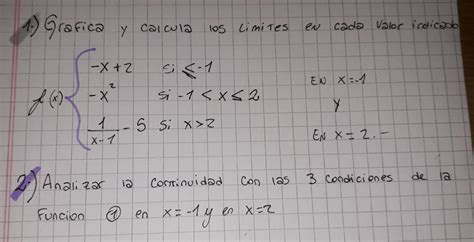 1.) Grafica y calcula los Limites en cada valor indicado
-x+2 si ≤-1
f(x) { -x² si -1 < x ≤ 2
1/(x-1) - 5 si x>2
EN x=-1
y
EN x=2.-
2) Analizar la continuidad con las 3 condiciones de la
Funcion ① en x=-1 y en x=2